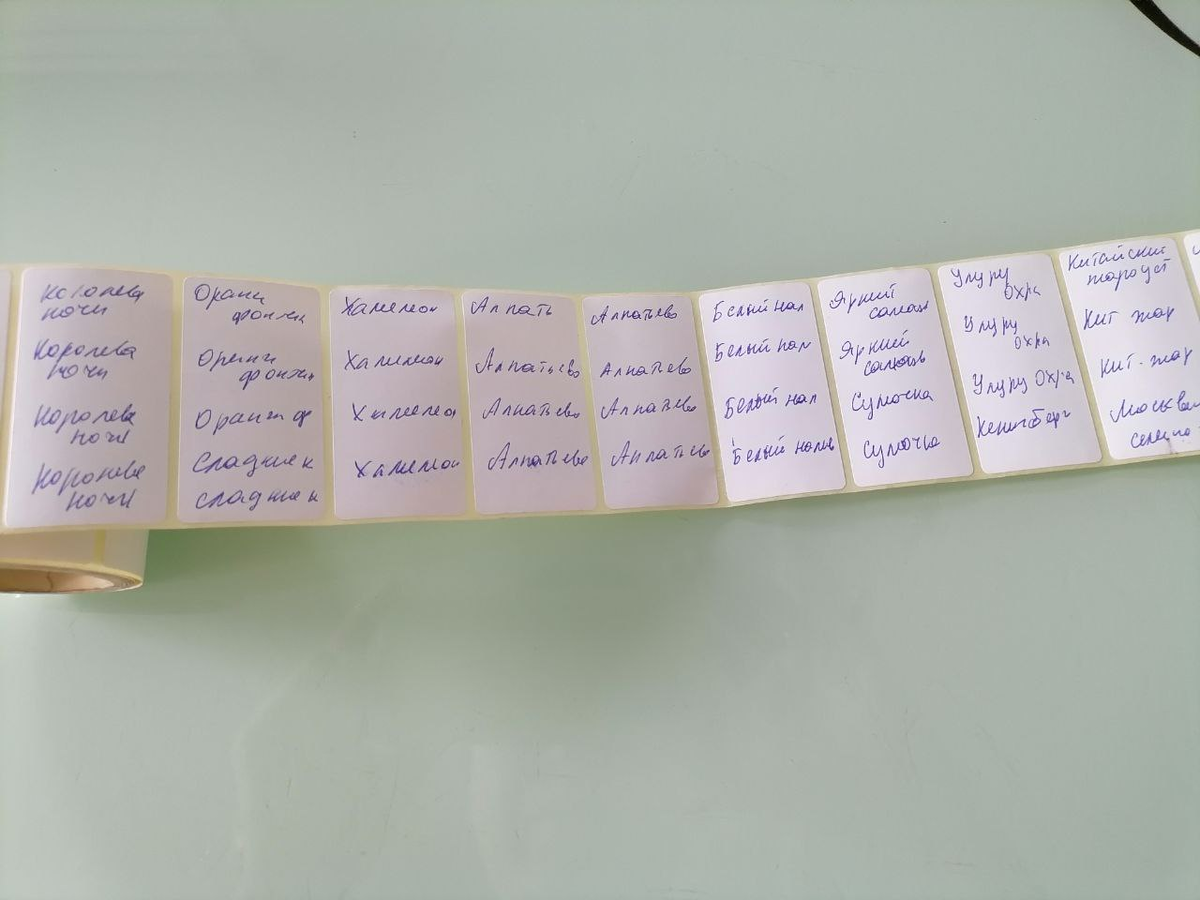 Королева
ночи
Королева
ночи
Королева
ночи
Королева
ночи
Оранж
Оранж ф
Сладкие к
Сладкие к
Хамелеон
Хамелеон
Хамелеон
Хамелеон
Алпать
Алпатьево
Алпатьево
Алпатьево
Алпатьево
Алпатьево
Алпатьево
Алпатьево
Белый нал
Белый нал
Белый нал
Белый налив
Яркий
Яркий
Сумочка
Сумочка
Улуру
Охра
Улуру
Охра
Улуру Охра
Кенигсберг
Китайский
жароуст
Кит жар
Кит. жар